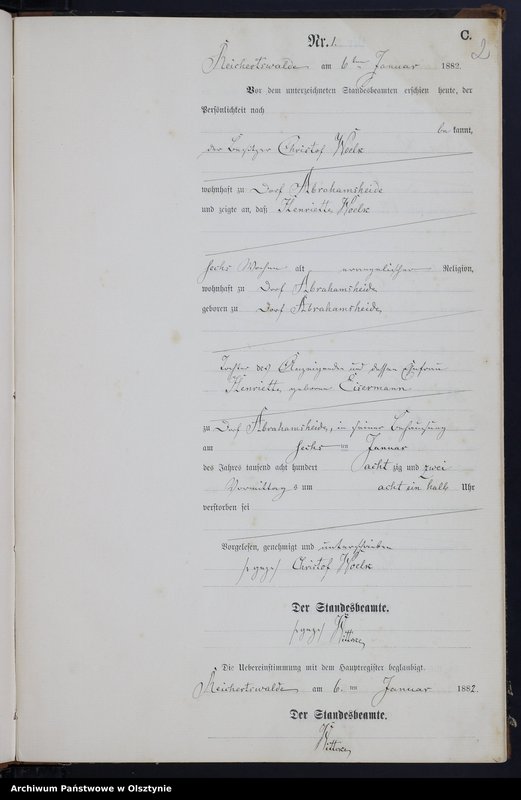 C.
2
Nr. 1.
Reichertswalde am 6ten Januar 1882.
Vor dem unterzeichneten Standesbeamten erschien heute, der
Persönlichkeit nach
be kannt,
der Besitzer Christof Woelk
wohnhaft zu Dorf Abrahamsheide
und zeigte an, daß Henriette Woelk
sechs Wochen alt evangelischer Religion,
wohnhaft zu Dorf Abrahamsheide
geboren zu Dorf Abrahamsheide,
Tochter des Anzeigenden und dessen Ehefrau
Henriette geborene Eisermann
zu Dorf Abrahamsheide, in seiner Behausung
am sechs ten Januar
des Jahres tausend acht hundert acht zig und zwei
Vormittag s um acht ein halb Uhr
verstorben sei
Vorgelesen, genehmigt und unterschrieben
/:gez:/ Christof Woelk
Der Standesbeamte.
/:gez:/
Die Uebereinstimmung mit dem Hauptregister beglaubigt.
Reichertswalde am 6. ten Januar 1882.
Der Standesbeamte.
Archiwum Państwowe w Olsztynie